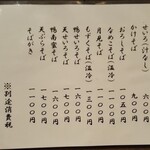 せいろ(汁なし) 六〇〇円
かけそば 九〇〇円
おろしそば 一〇〇〇円
月見そば
なめこそば(温冷)
もずくそば(温冷) 一三〇〇円
鴨せいろそば
天せいろそば 一六〇〇円
鴨南蛮そば
天ぷらそば 一六〇〇円
そばがき 一一〇〇円
※別途消費税